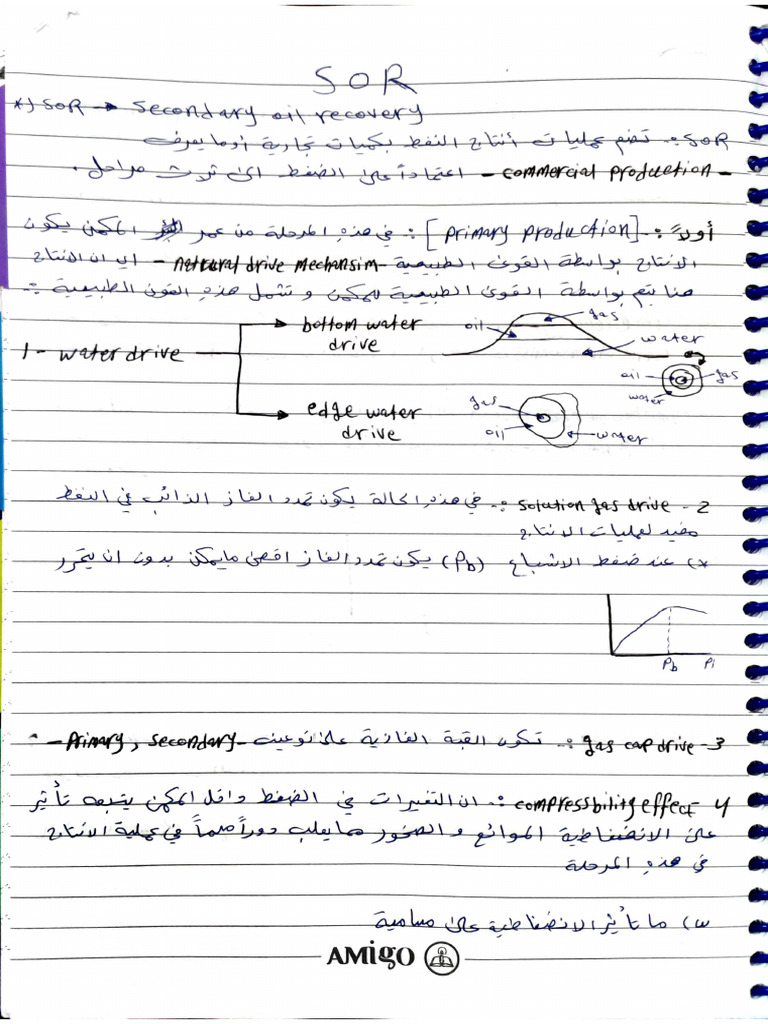 SOR
*) SOR → Secondary oil recovery
SOR :. تضم عمليات أنتاج النفط بكميات تجارية أوما يعرف
- commercial production - اعتماداً على الضغط الى ثلاث مراحل .
أولاً :. [primary production] :. في هذهِ المرحلة من عمر المكمن يكون
الانتاج بواسطة القوى الطبيعية - natural drive Mechansim - اي ان الانتاج
هنا يتم بواسطة القوى الطبيعية للمكمن و تشمل هذهِ القوى الطبيعية :.
1 - water drive
bottom water drive
edge water drive
oil
gas
water
oil
gas
water
gas
oil
water
2 - solution gas drive :. في هذهِ الحالة يكون تمدد الغاز الذائب في النفط
مفيد لعمليات الانتاج
*) عند ضغط الاشباع (Pb) يكون تمدد الغاز اقصى مايمكن بدون ان يتحرر
Pb Pi
3 - gas cap drive :. تكون القبة الغازية على نوعين - Primary, secondary -
4 - compressbility effect :. ان التغيرات في الضغط داخل المكمن يتبعه تأثير
على الانضغاطية الموائع و الصخور مما يلعب دوراً مهماً في عملية الانتاج
في هذهِ المرحلة
س) ما تأثير الانضغاطية على مسامية
AMiGO